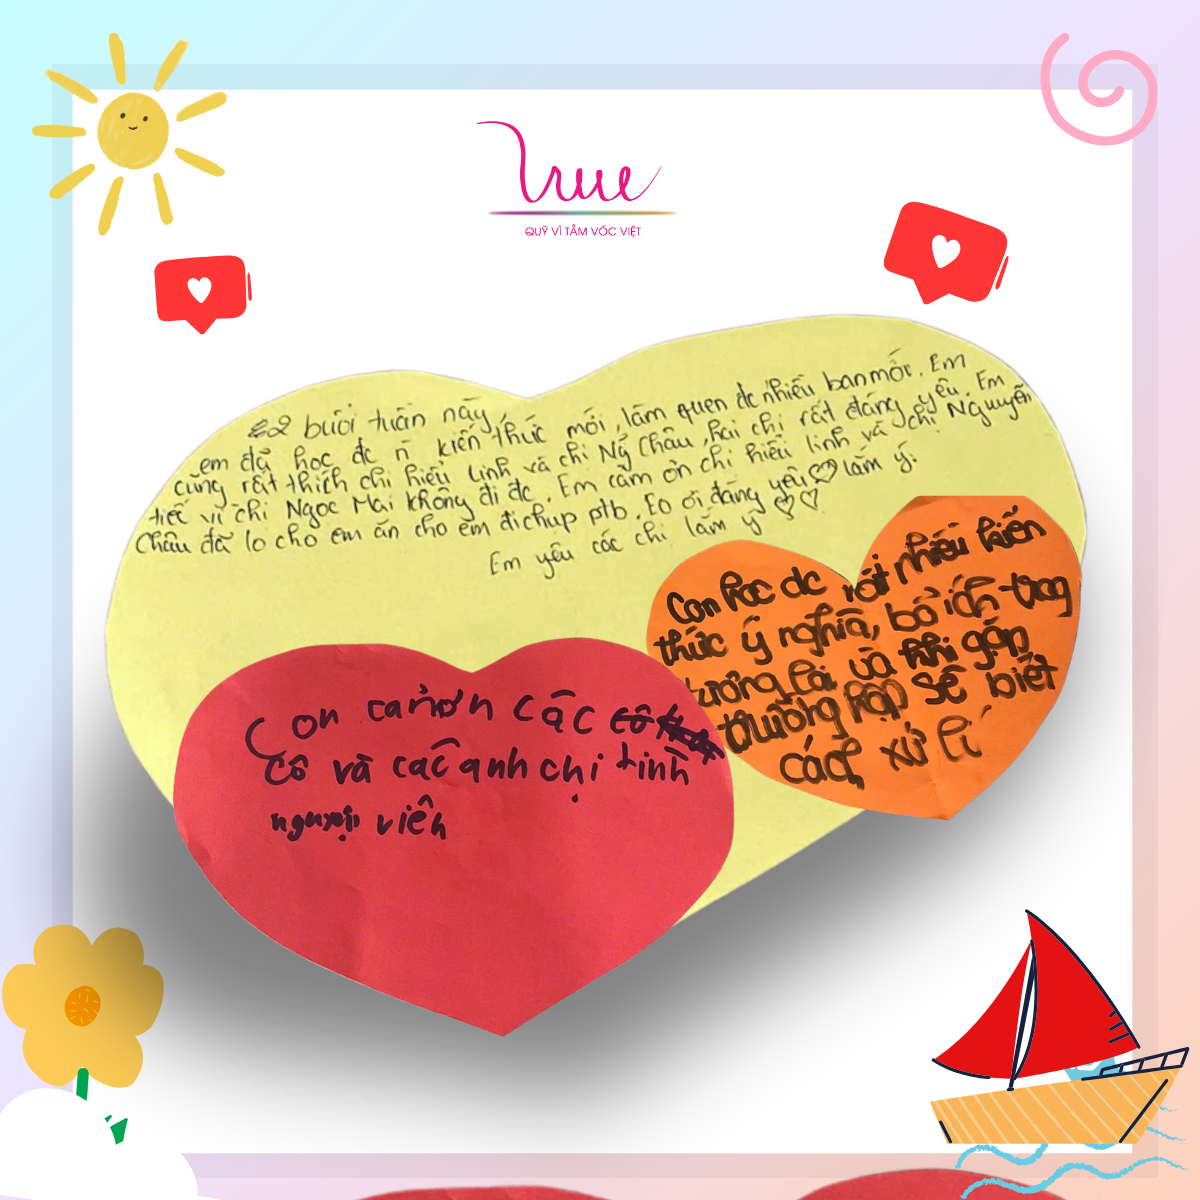 True
QUỸ VÌ TẦM VÓC VIỆT
2 buổi tuần này,
em đã học đc n kiến thức mới, làm quen đc nhiều bạn mới. Em
cũng rất thích chị hiếu linh và chị Ng Châu, hai chị rất đáng yêu. Em
tiếc vì chị Ngọc Mai không đi đc. Em cảm ơn chị hiếu linh và chị Nguyễn
Châu đã lo cho em ăn cho em đi chụp ptb. Eo ơi đáng yêu lắm ý.
Em yêu các chị lắm ý
Con học dc rất nhiều kiến
thức ý nghĩa, bổ ích trong
tương lai và khi gặp
trường hợp sẽ biết
cách xử lí
Con cảm ơn các cô
cô và các anh chị tình
nguyện viên